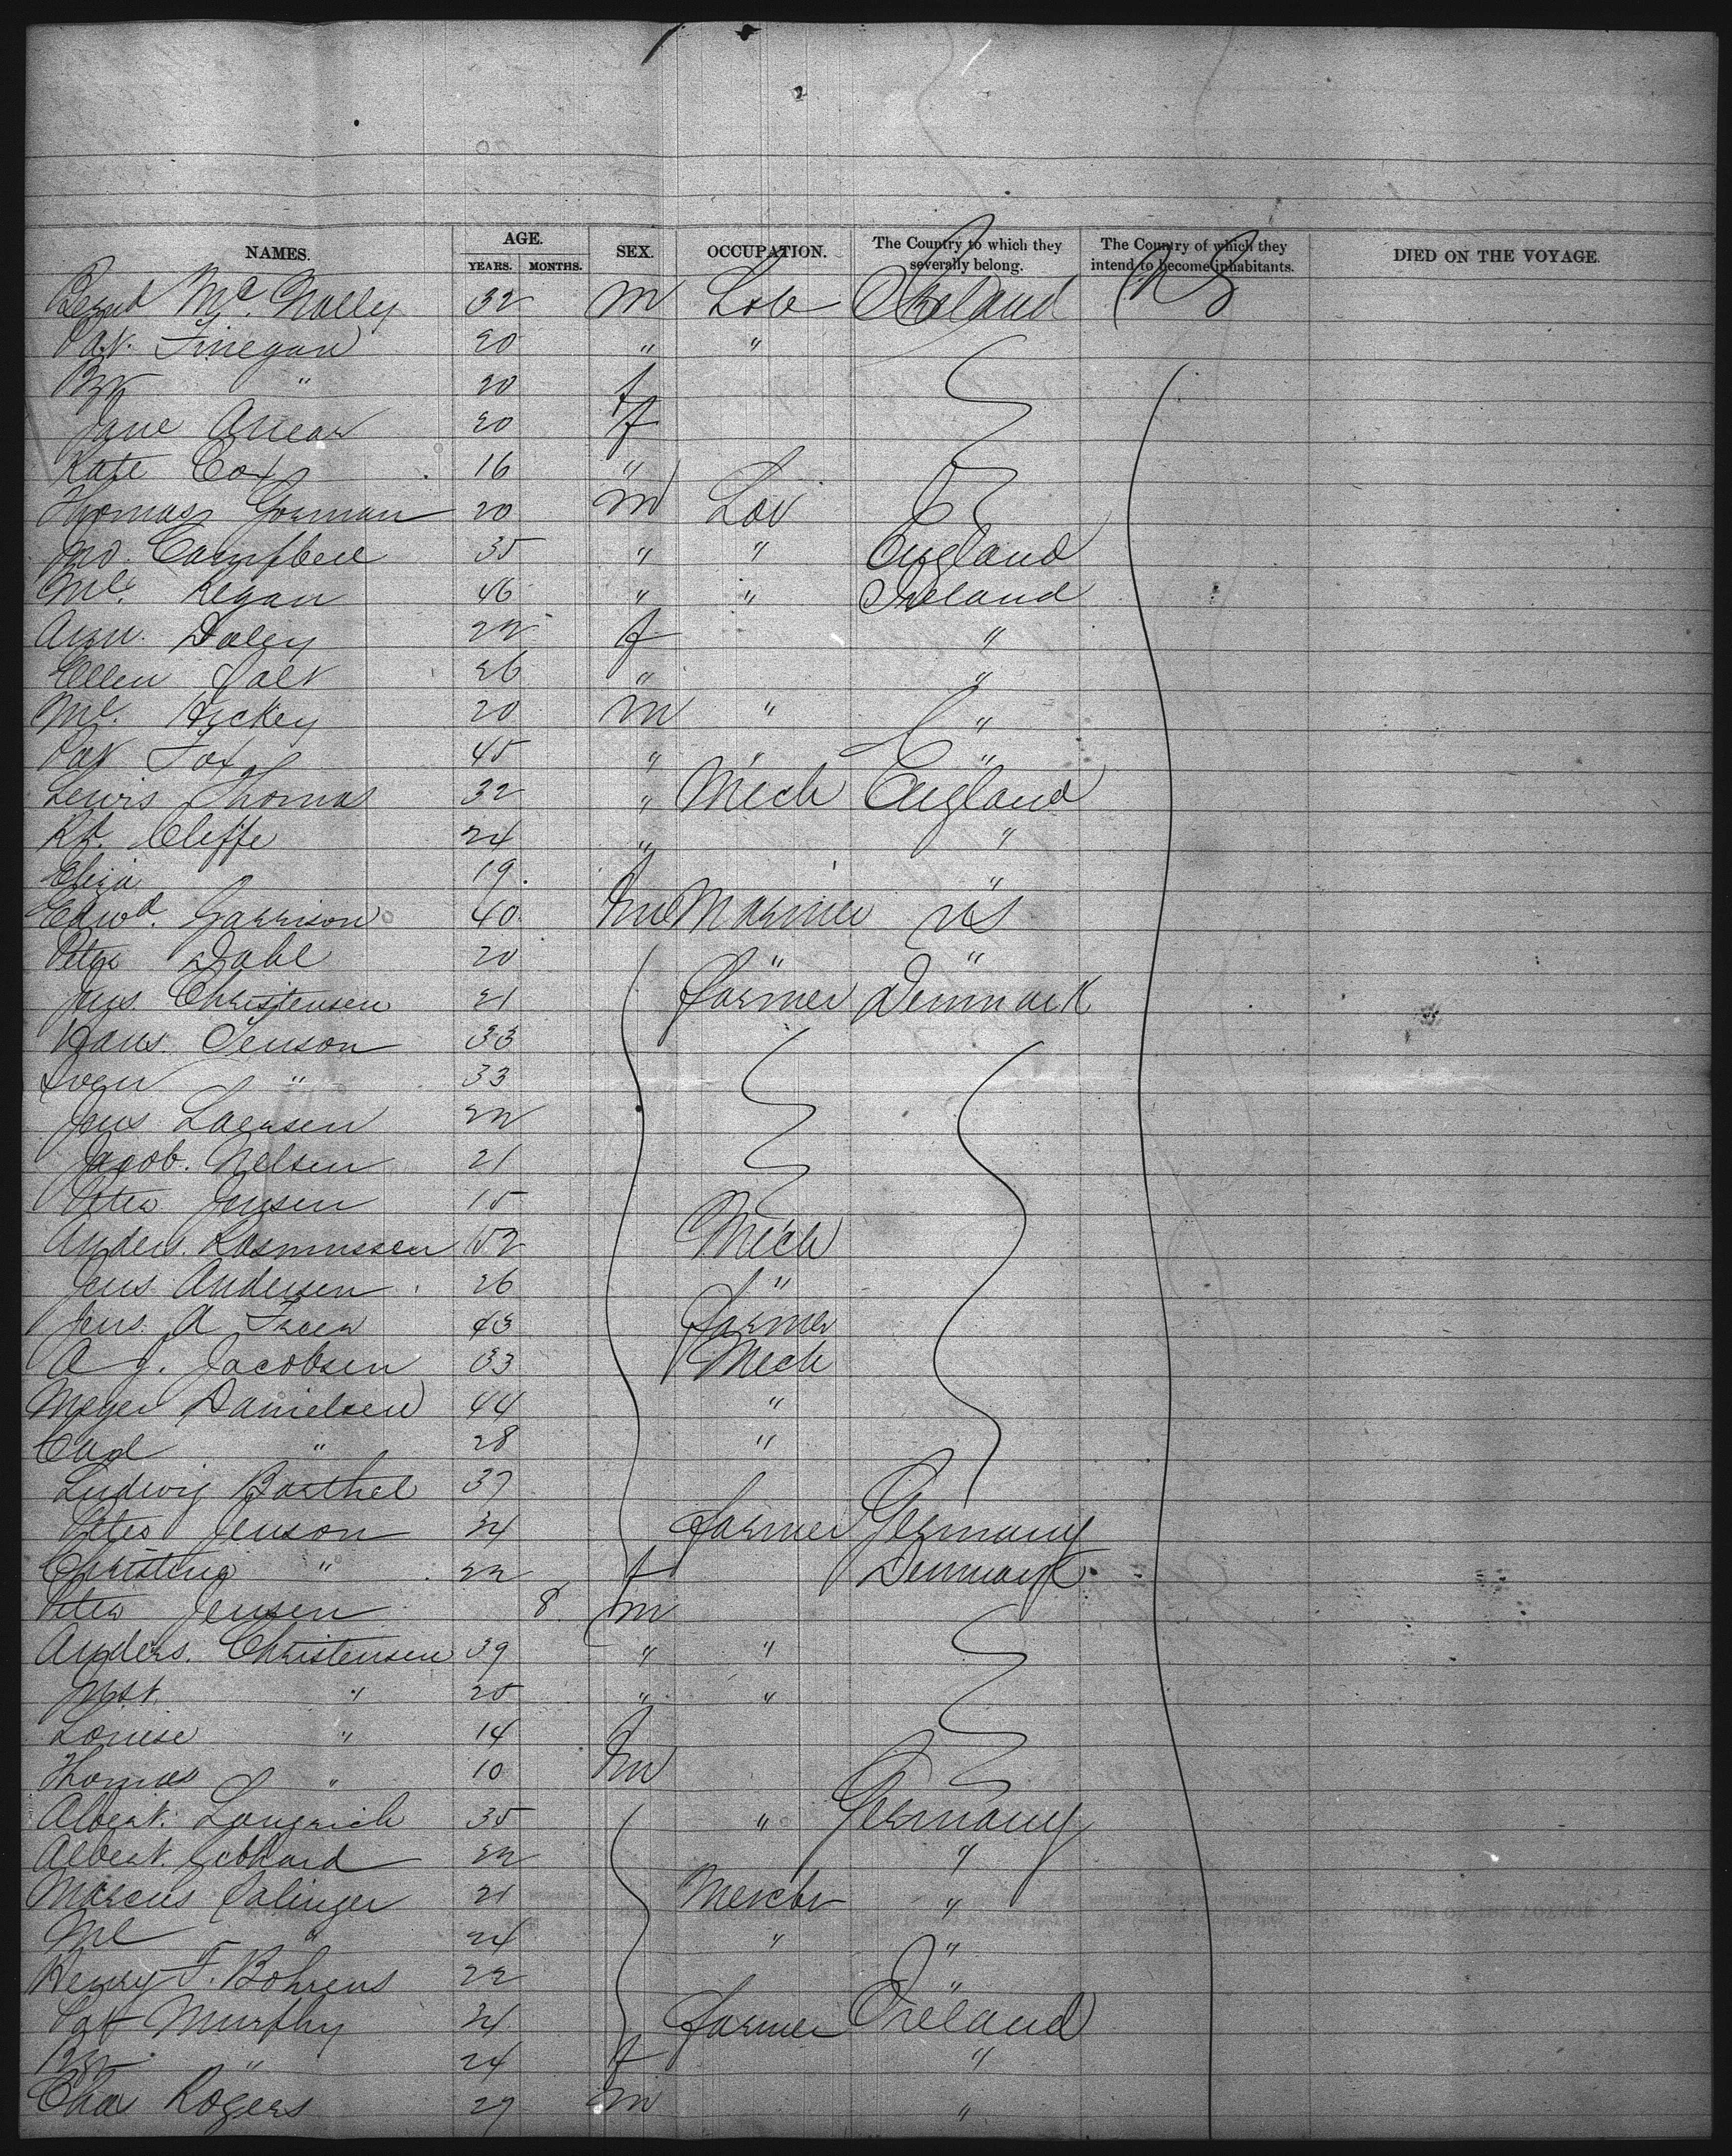 NAMES. AGE. YEARS. MONTHS. SEX. OCCUPATION. The Country to which they severally belong. The Country of which they intend to become inhabitants. DIED ON THE VOYAGE.
Mc. Nally 32 m Lab Ireland U S
Pat. Finegan 20 " "
" 20 f
Jane 20 f
Kate Cox 16 "
Thomas Gorman 20 m Lab
Campbell 35 " " England
Ml. Regan 46 " " Ireland
Ann. Daley 22 f "
Ellen 26 " "
Ml. Hickey 20 m " "
Pat Fox 45 " " "
Lewis Thomas 32 " Mech England
Rt. Cliffe 24 " "
Eliza 19 f "
Edwd. Garrison 40 m Mariner US
Peter Dahl 20 " "
Jens. Christensen 21 farmer Denmark
Hans. Jenson 33
" 33
Jens Laersen 22
Jacob. Nelsen 21
Peter Jensen 15
Anders. Rasmussen 52 Mech
Jens Andersen 26 "
Jens. A 43 farmer
A J. Jacobsen 33 Mech
Meyer Danielsen 44 "
Carl " 28 "
Ludwig Barthel 37
Peter Jenson 34 farmer Germany
Christine " 22 f Denmark
Peter Jensen 8 m
Anders. Christensen 39 " "
" 25 " "
Louise " 14 f
Thomas " 10 m
Albert. 35 " Germany
Albert. Gebhard 22 "
Marcus Salinger 21 Mercht "
Ml " 24 " "
Henry F. Bohrens 22 "
Pat Murphy 34 farmer Ireland
" 24 f "
Chas Rogers 27 m "